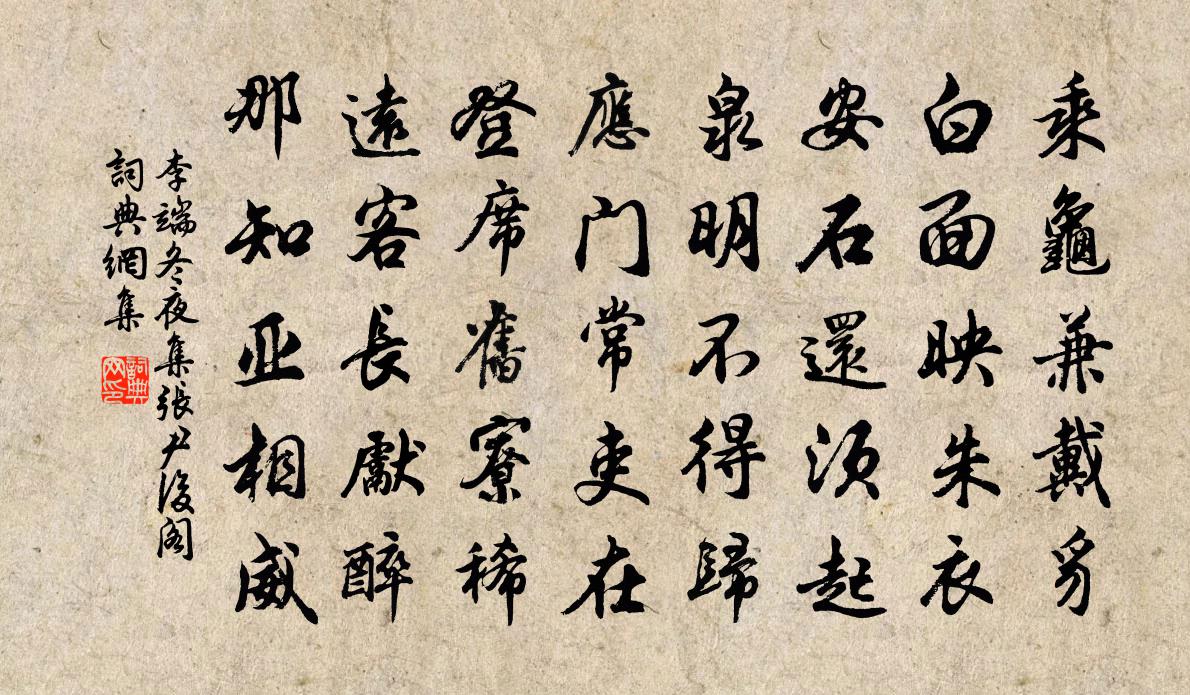 乘龜兼戴豸
白面映朱衣
安石還須起
泉明不得歸
應门常吏在
登席舊寮稀
遠客長獻醉
那知亚相威
李端冬夜集張尹後阁
詞典網集
詞典网印